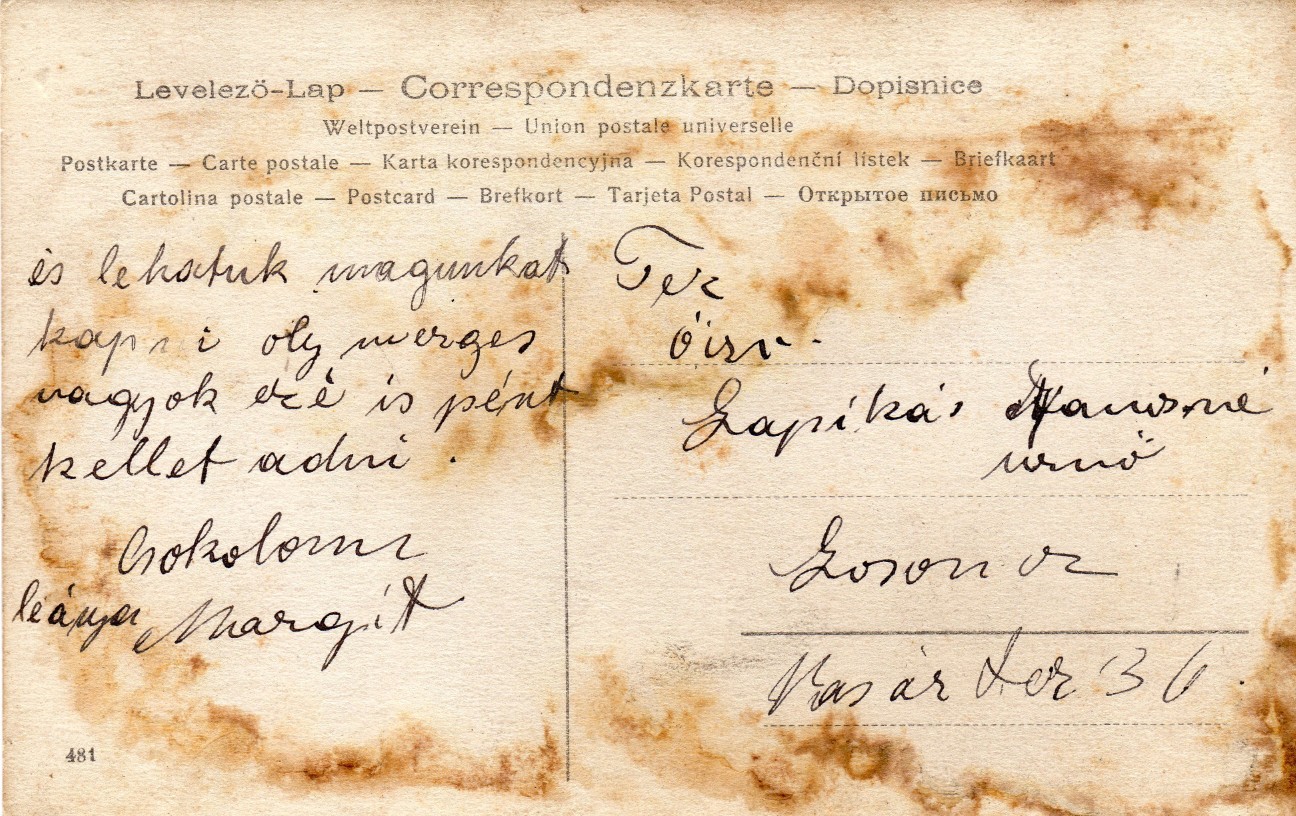 Levelező-Lap — Correspondenzkarte — Dopisnice
Weltpostverein — Union postale universelle
Postkarte — Carte postale — Karta korespondencyjna — Korespondenční lístek — Briefkaart
Cartolina postale — Postcard — Brefkort — Tarjeta Postal — Открытое письмо
és lehatuk magunkat
kapni oly merges
vagyok ezé is pént
kellet adni .
Csokolom
leánya Margít
Tek
Lapíkás
urnö
Losoncz
Vasár ter 36.
481